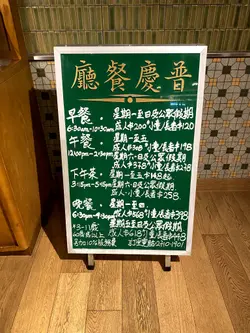 廳餐慶普
早餐 : 星期一至日及公眾假期
6:30am-10:30am 成人$200 小童/長者$120
午餐 : 星期一至五
12:00pm-2:30pm 成人$308 小童/長者$198
星期六.日及公眾假期
下午茶 : 星期一至五 $148
3:15pm-5:15pm 星期六.日及公眾假期
成人.小童/長者$258
晚餐 : 星期一至四
6:30pm-9:30pm 成人$568 小童/長者$398
*3-11歲 星期五至日及公眾假期
60歲或以上 成人$618 小童/長者$448
另加10%服務費